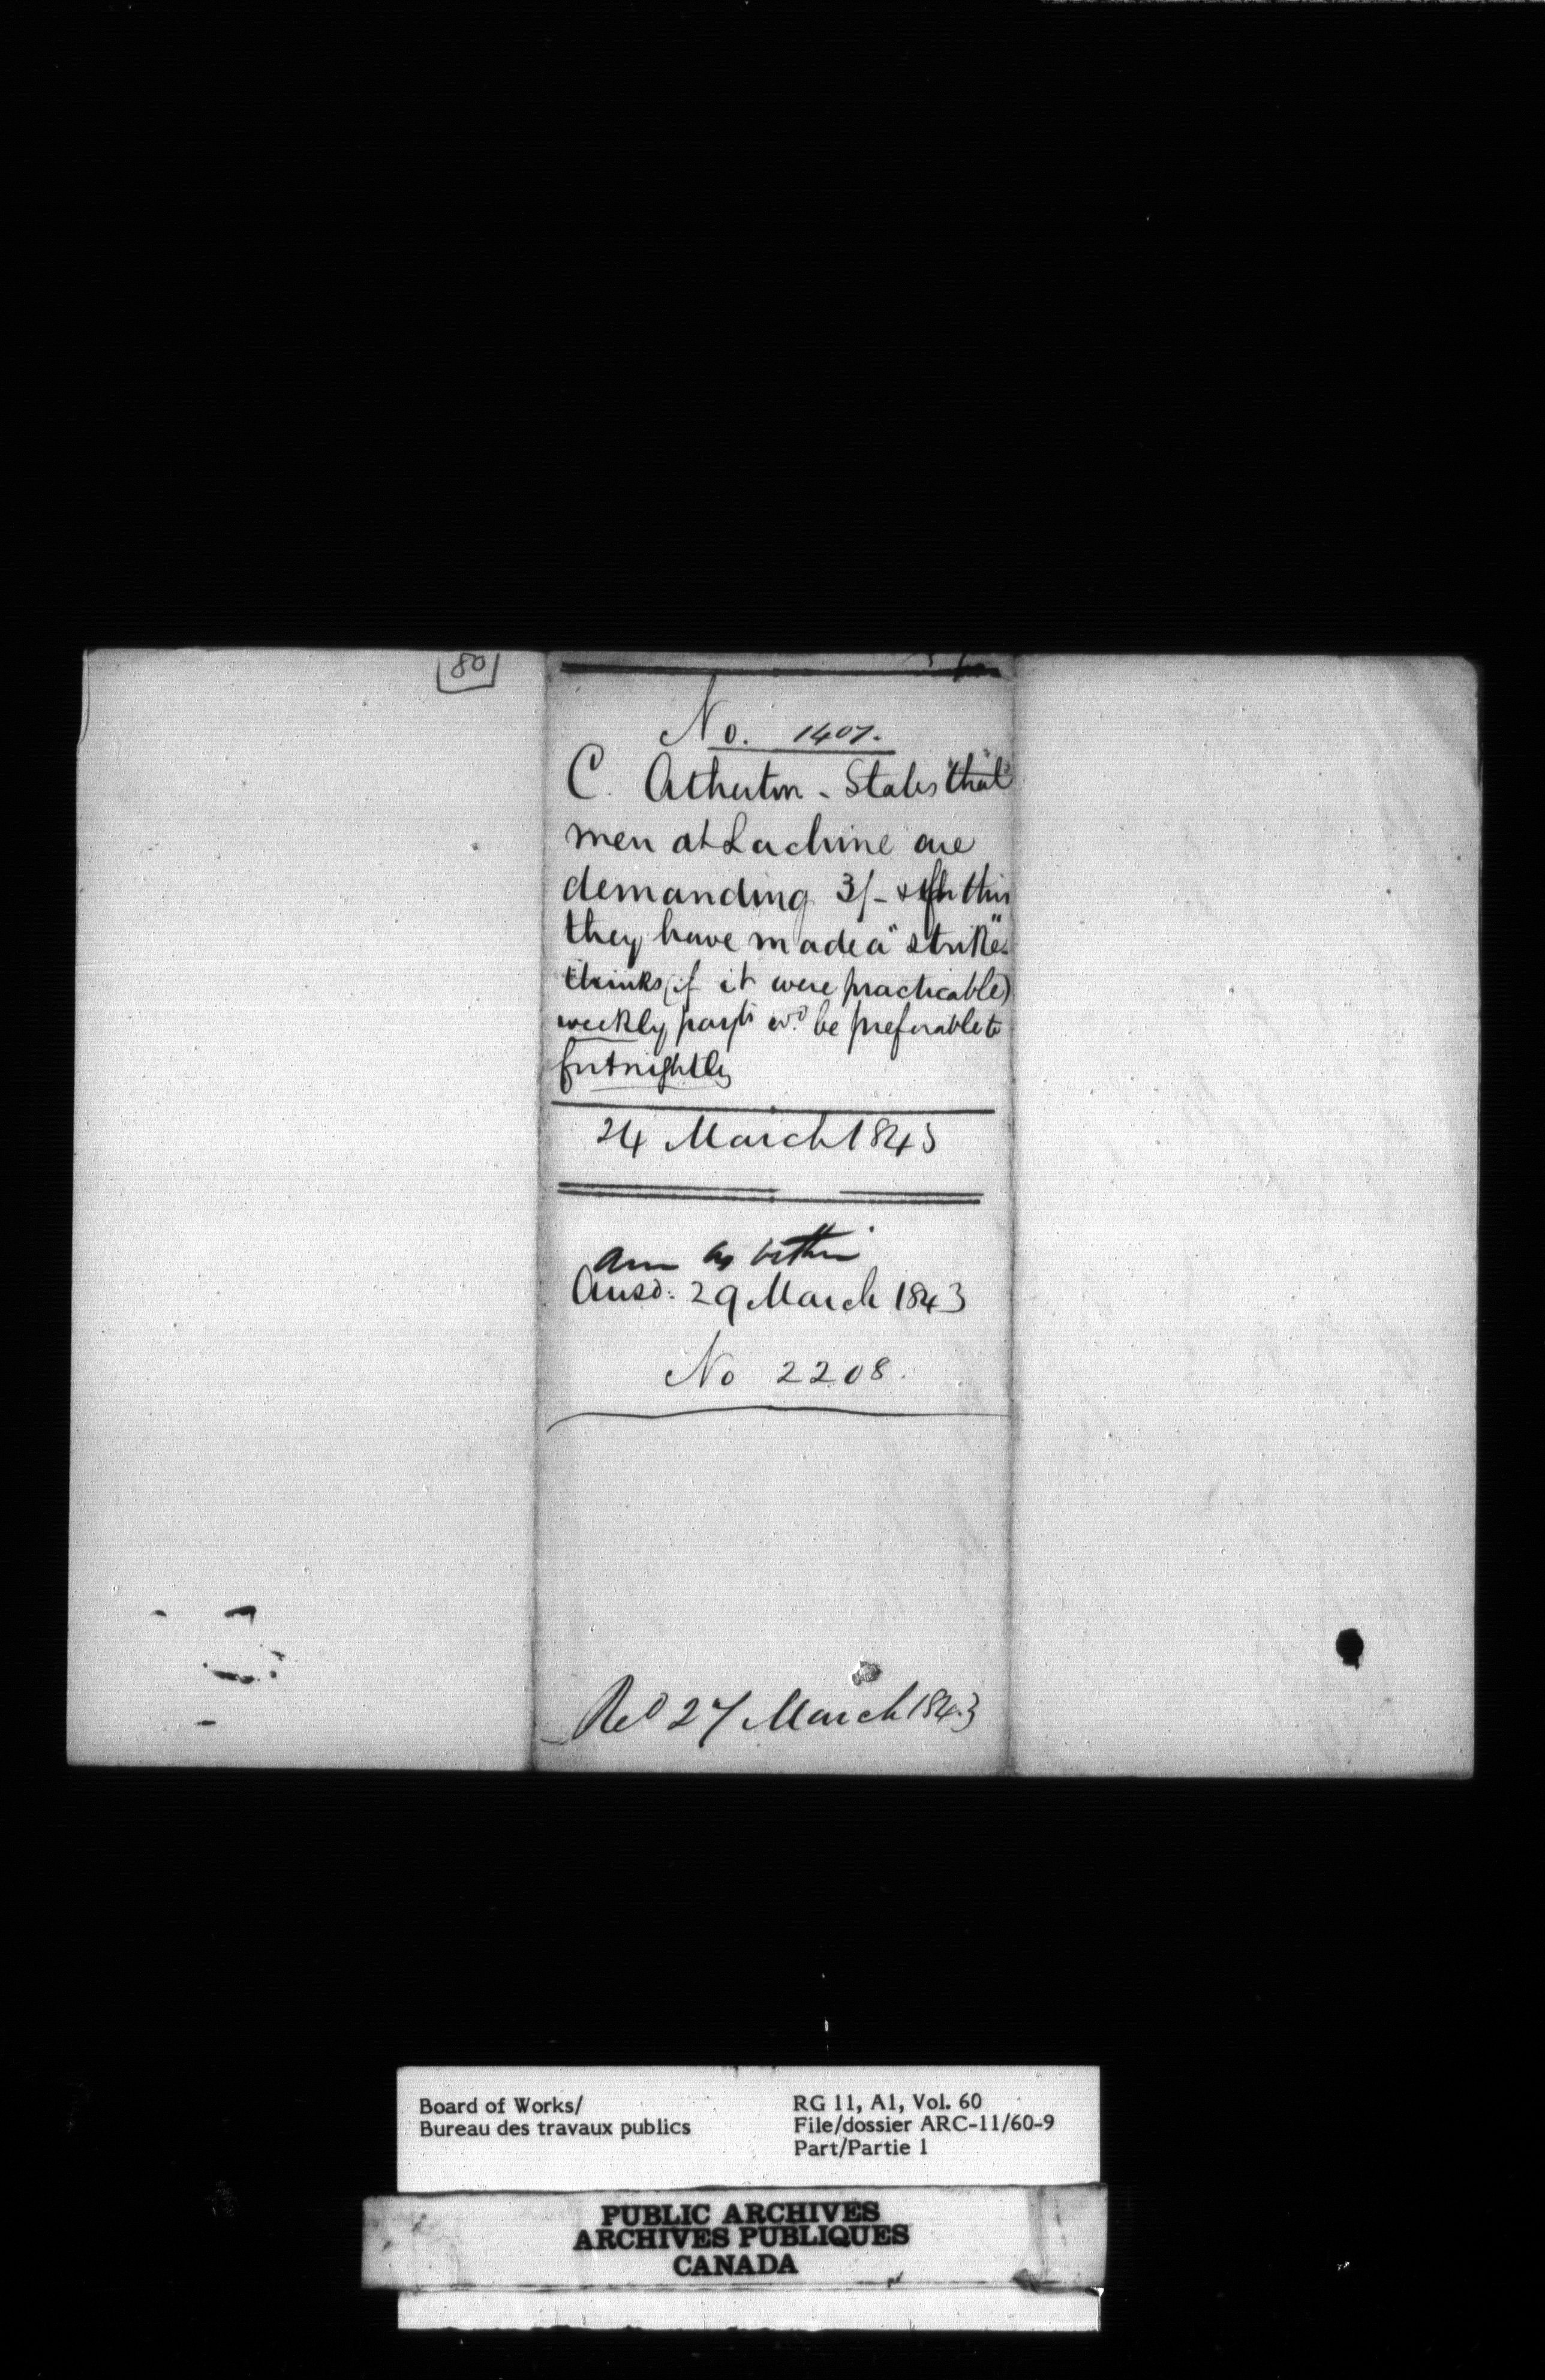 80
No. 1407.
C. Atherton - States "that"
men at Lachine are
demanding 3/- & for this
they have made a "strike".
thinks (if it were practicable)
weekly payts wd. be preferable to
fortnightly
24 March 1843
as within
Ansd. 29 March 1843
No 2208.
Recd 27 March 1843
Board of Works/
Bureau des travaux publics
RG 11, A1, Vol. 60
File/dossier ARC-11/60-9
Part/Partie 1
PUBLIC ARCHIVES
ARCHIVES PUBLIQUES
CANADA